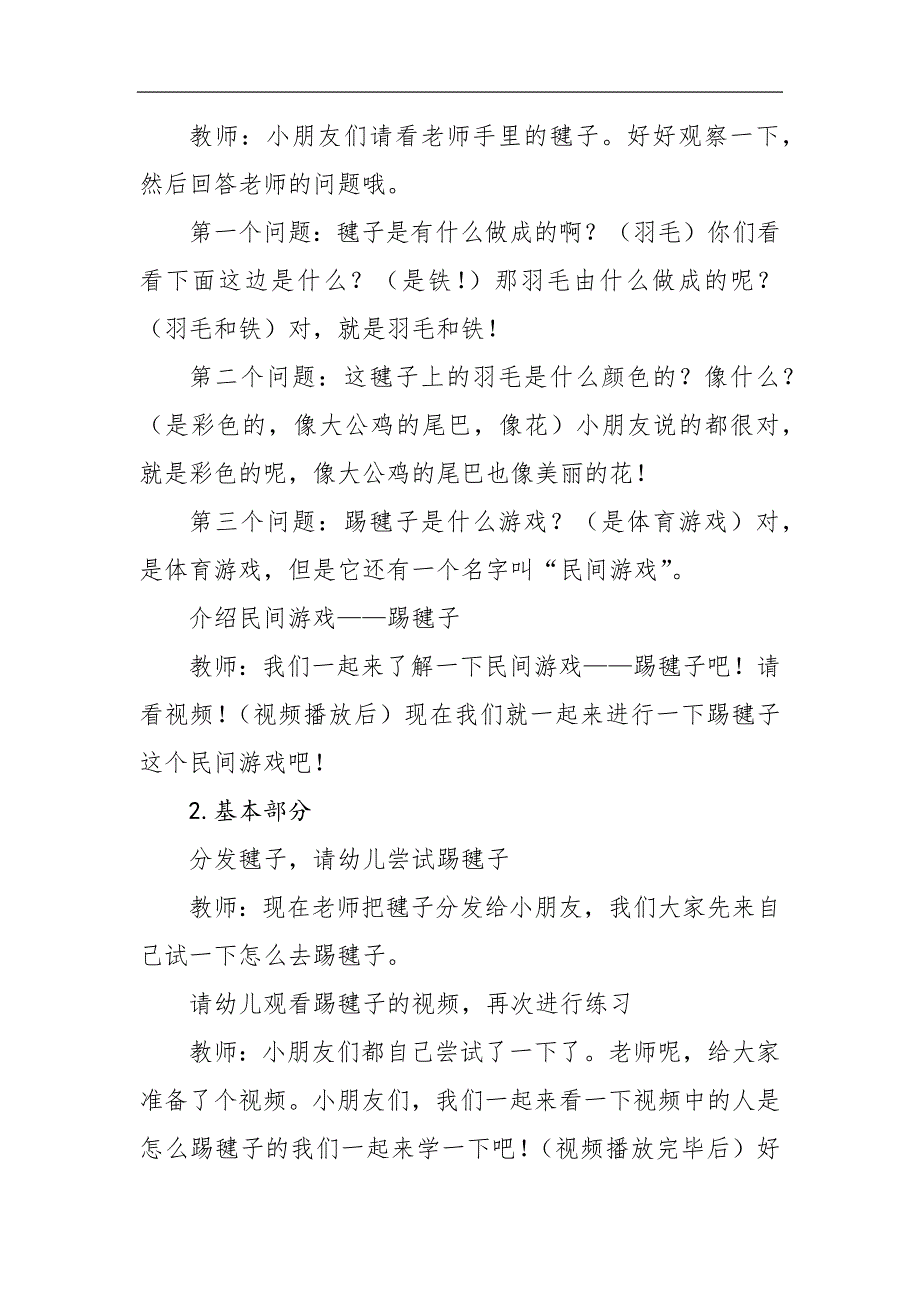 教师：小朋友们请看老师手里的毽子。好好观察一下，
然后回答老师的问题哦。
第一个问题：毽子是有什么做成的啊？（羽毛）你们看
看下面这边是什么？（是铁！）那羽毛由什么做成的呢？
（羽毛和铁）对，就是羽毛和铁！
第二个问题：这毽子上的羽毛是什么颜色的？像什么？
（是彩色的，像大公鸡的尾巴，像花）小朋友说的都很对，
就是彩色的呢，像大公鸡的尾巴也像美丽的花！
第三个问题：踢毽子是什么游戏？（是体育游戏）对，
是体育游戏，但是它还有一个名字叫“民间游戏”。
介绍民间游戏——踢毽子
教师：我们一起来了解一下民间游戏——踢毽子吧！请
看视频！（视频播放后）现在我们就一起来进行一下踢毽子
这个民间游戏吧！
2.基本部分
分发毽子，请幼儿尝试踢毽子
教师：现在老师把毽子分发给小朋友，我们大家先来自
己试一下怎么去踢毽子。
请幼儿观看踢毽子的视频，再次进行练习
教师：小朋友们都自己尝试了一下了。老师呢，给大家
准备了个视频。小朋友们，我们一起来看一下视频中的人是
怎么踢毽子的我们一起来学一下吧！（视频播放完毕后）好